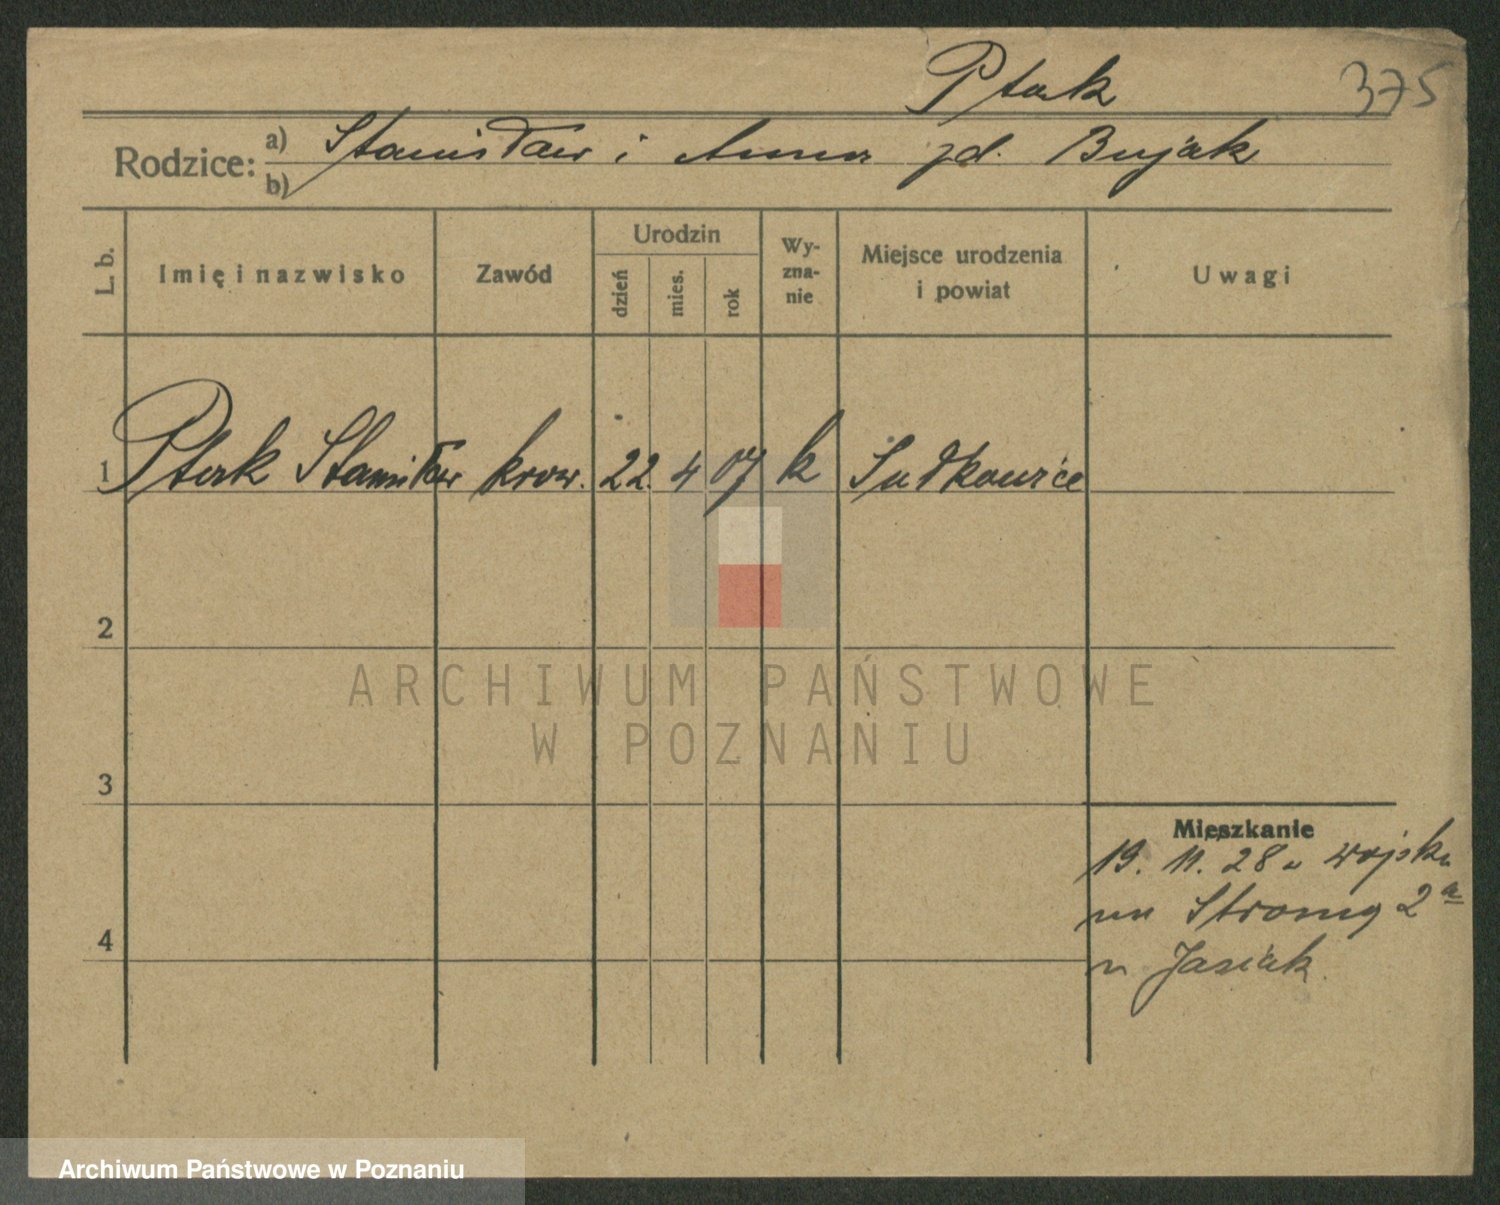 Ptak 375
Rodzice: a) Stanisław i Anna zd. Bujak
b)
L. b. Imię i nazwisko Zawód Urodzin Wy-
zna-
nie Miejsce urodzenia
i powiat Uwagi
dzień mies. rok
1 Ptak Stanisław kraw. 22. 4 07 k Sułkowice
2
ARCHIWUM PAŃSTWOWE
W POZNANIU
3
Mieszkanie
19. 11. 28 z wojska
na Stromą 2a
4
u Jasiak.
Archiwum Państwowe w Poznaniu